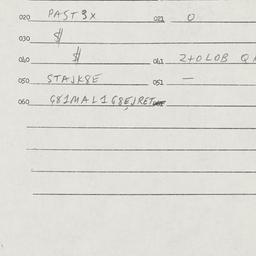 020 PAST9X 021 0
030 $
040 $ 041 2+OLOB
050 STAJK8E 051 —
060 G81MAL1G8EJRET